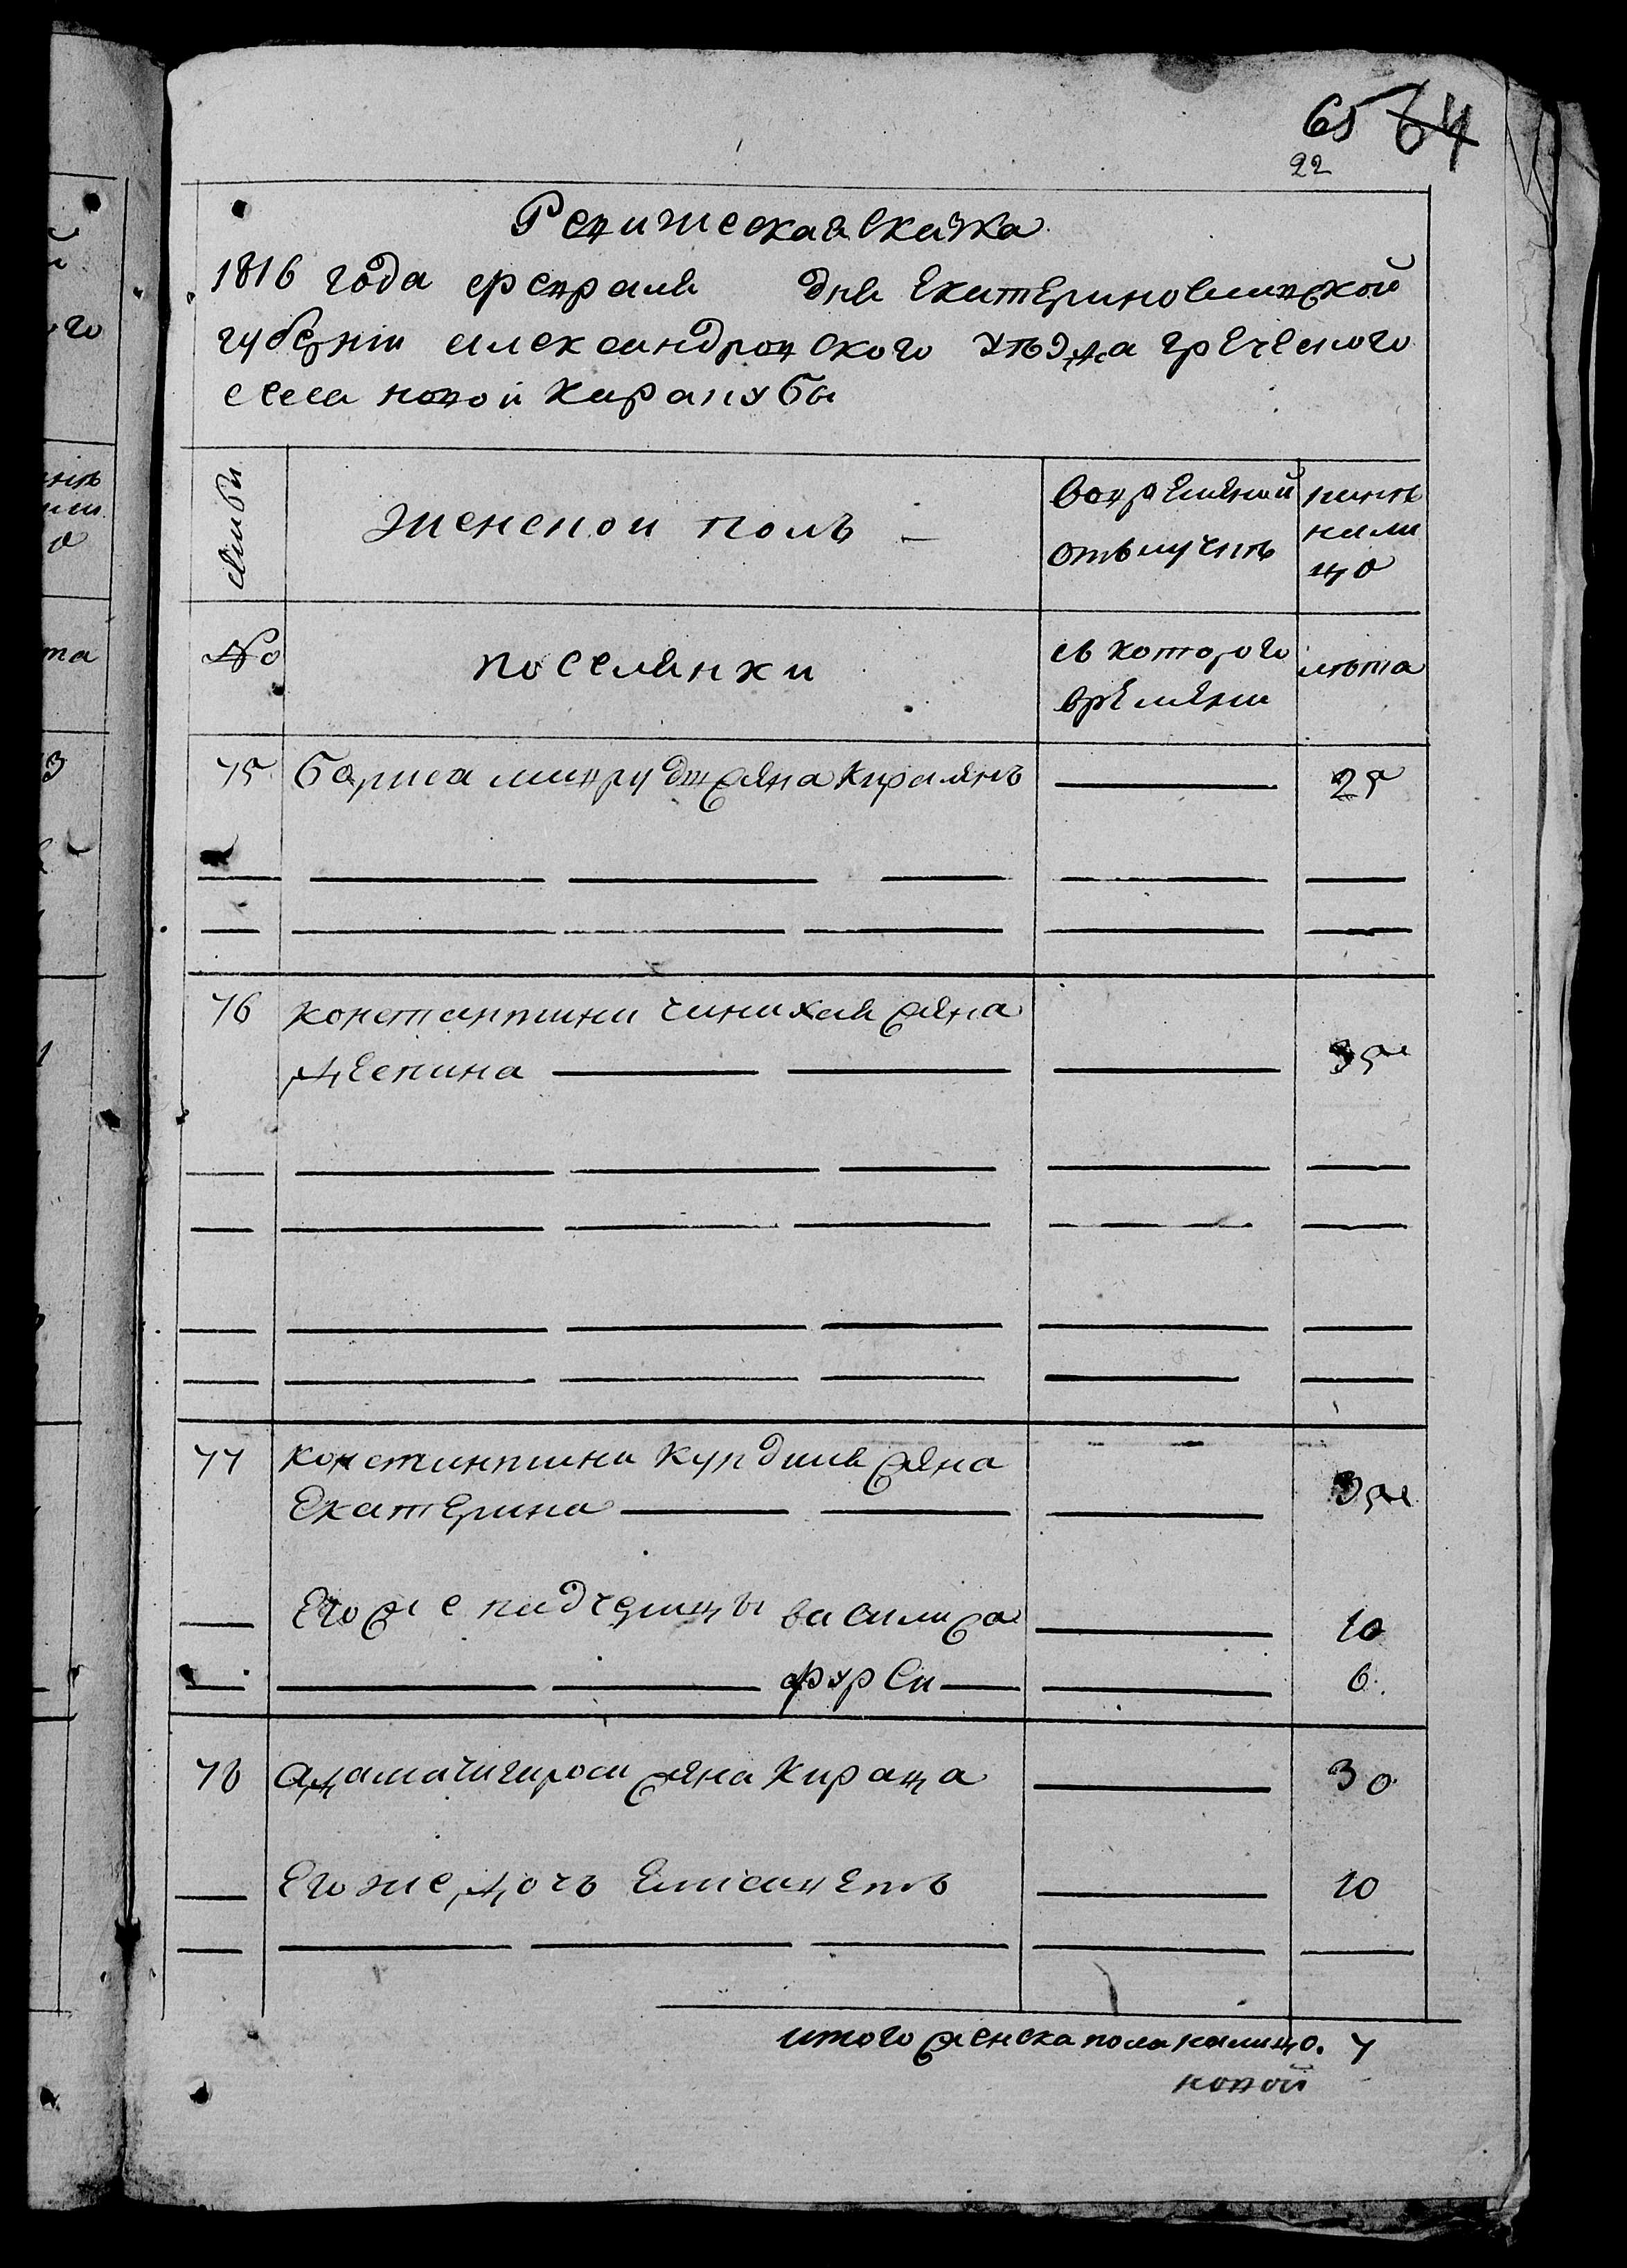 65 64
22
Ревижеская скаска
1816 года февраля дня Екатеринославской
губернии александровского уъзда греческого
села новой каракубы
женской полъ
вовременной отълучкъ
нынъ налицо
No
поселянки
съ которого времяни
лъта
75 Бориса мавруди жена Кирамянъ 25
76 константина чинихая жена
деспина 35
77 константина Курджия жена
Екатерина 35
Его же падчерицы василиса 10
фурси 6
78 адама чигироса жена Кираца 30
Его же дочъ Елисаветъ 10
итого женска пола налицо. 7
новой